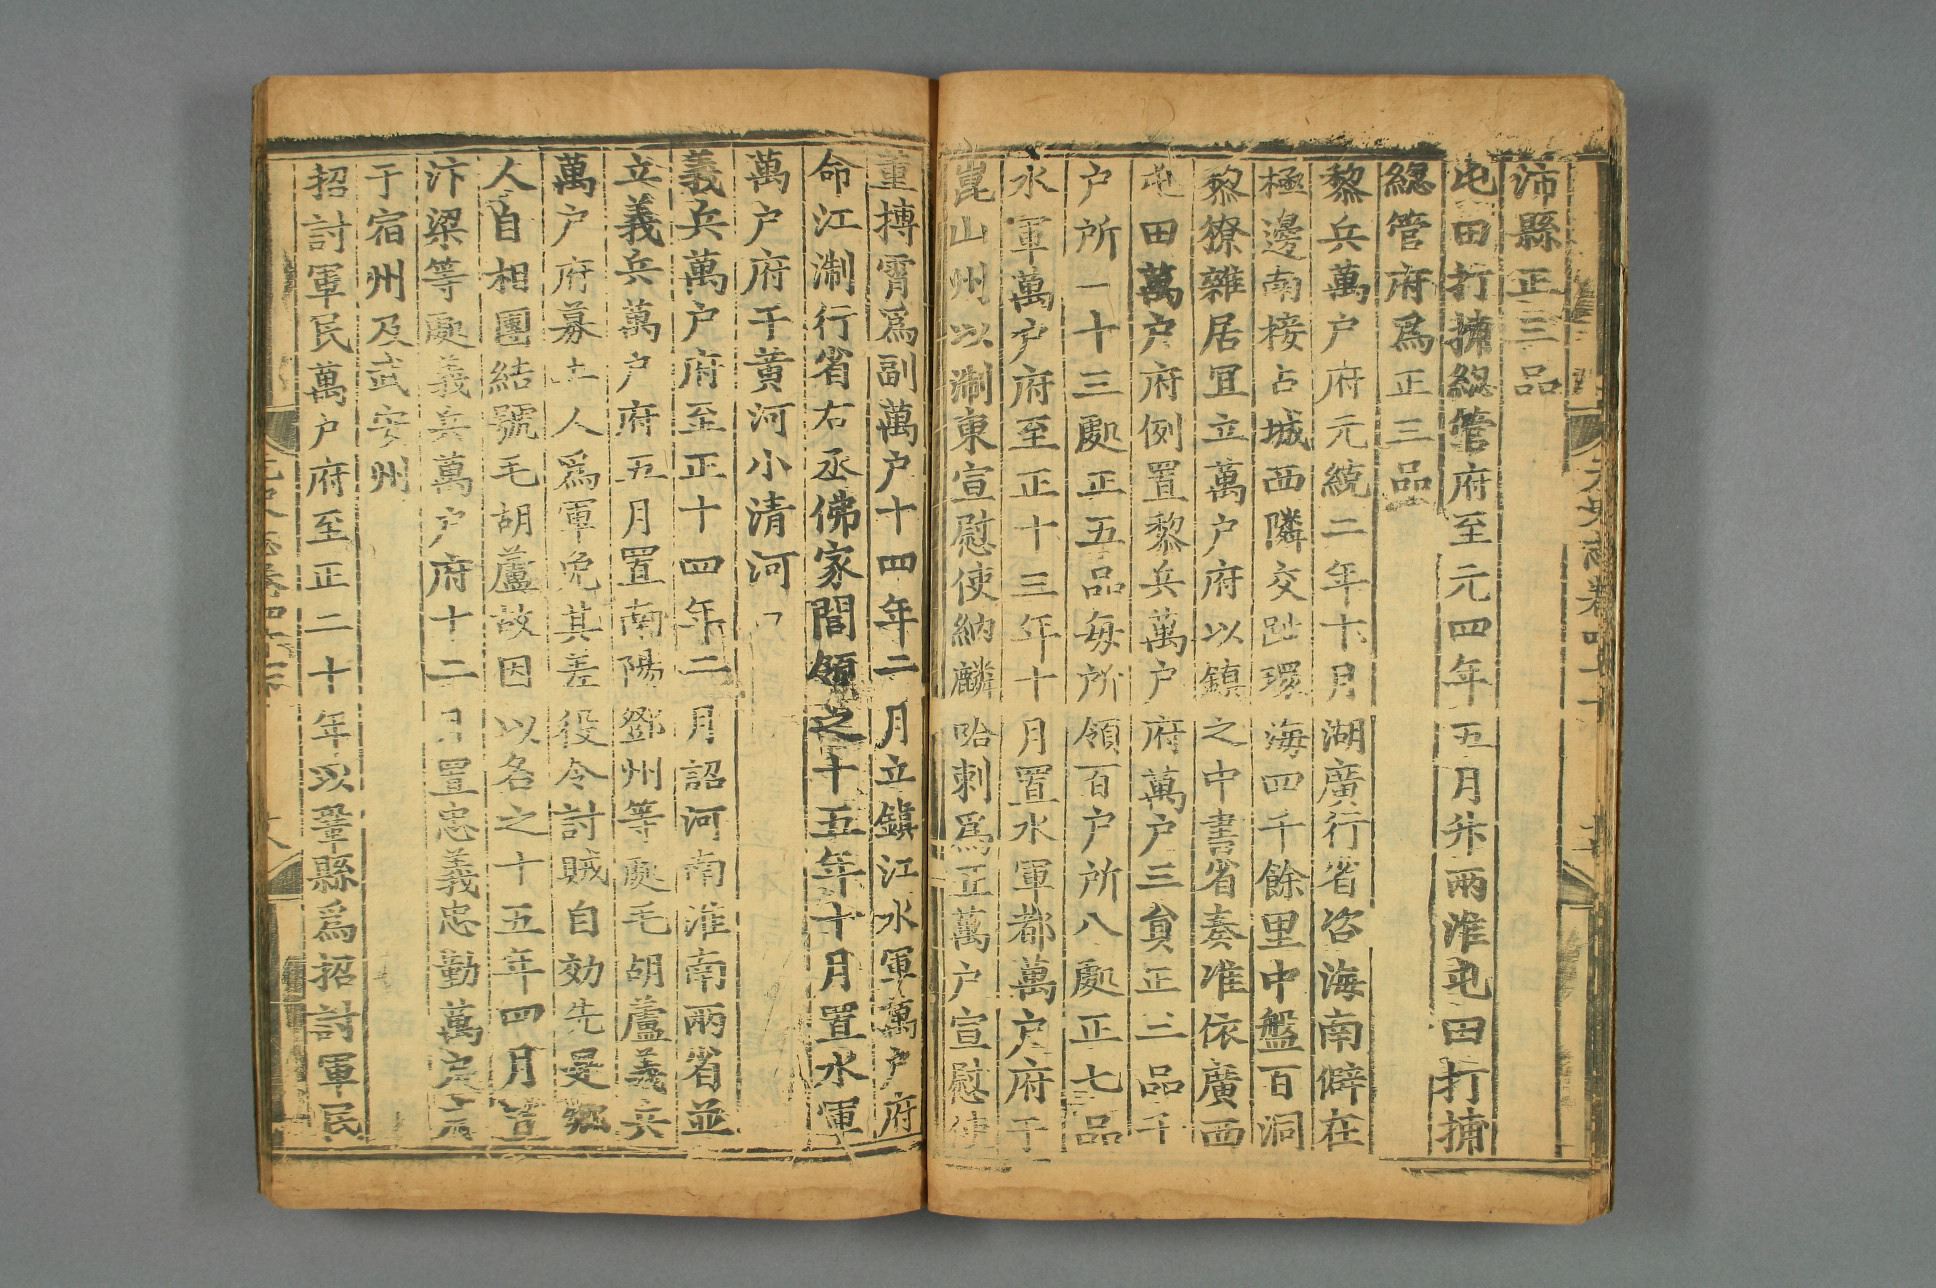 沛縣正三品
屯田打捕緫管府至元四年五月升兩淮屯田打捕
緫管府爲正三品
黎兵萬户府元統二年十月湖廣行省咨海南僻在
極邊南接占城西隣交趾環海四千餘里中盤百洞
黎獠雜居宜立萬户府以鎮之中書省奏准依廣西
屯田萬户府例置黎兵萬户府萬户三員正三品千
户所一十三處正五品每所領百户所八處正七品
水軍萬户府至正十三年十月置水軍都萬户府于
崑山州以淛東宣慰使納麟哈剌爲正萬户宣慰使
董搏霄爲副萬户十四年二月立鎮江水軍萬户府
命江淛行省右丞佛家閭領之十五年十月置水軍
萬户府于黃河小清河口
義兵萬户府至正十四年二月詔河南淮南兩省並
立義兵萬户府五月置南陽鄧州等處毛胡蘆義兵
萬户府募土人爲軍免其差役令討賊自効先是鄉
人自相團結號毛胡蘆故因以名之十五年四月置
汴梁等處義兵萬户府十二月置忠義忠勤萬户府
于宿州及武安州
招討軍民萬户府至正二十年以鞏縣爲招討軍民